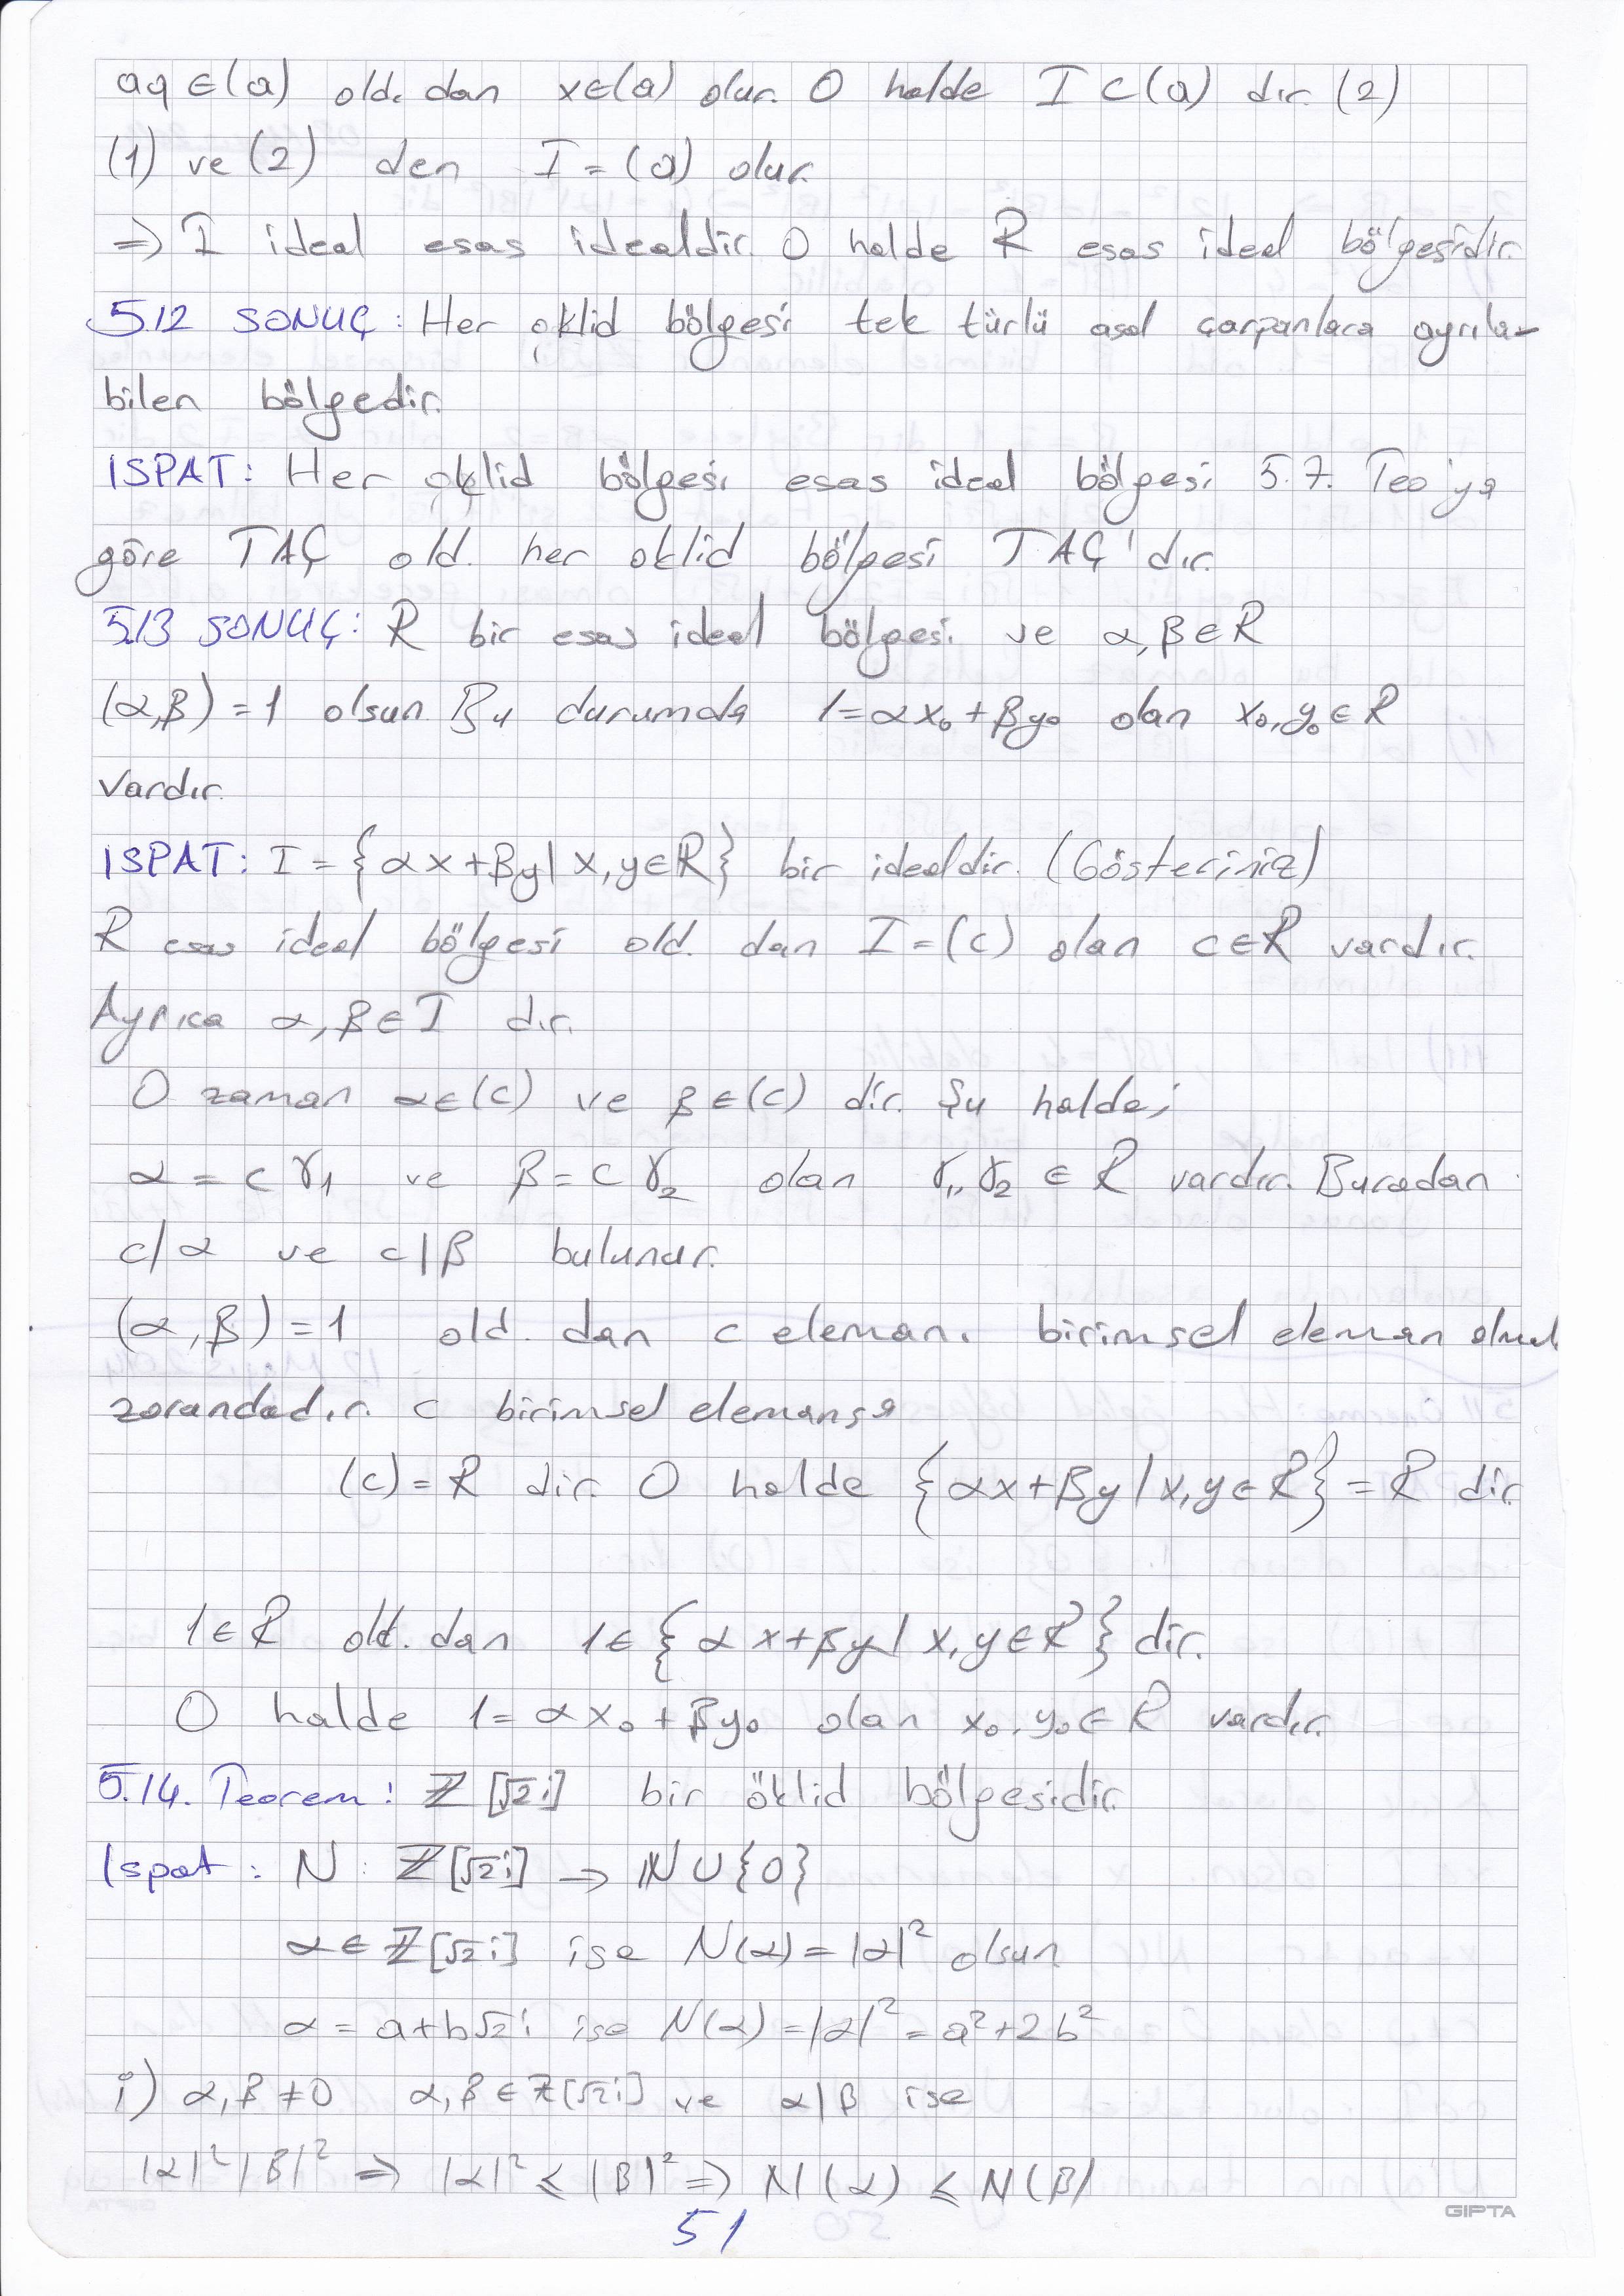 aq ∈(a) old. dan x∈(a) olur. O halde I ⊂(a) dır. (2)
(1) ve (2) den I = (a) olur.
⇒ I ideal esas idealdir. O halde R esas ideal bölgesidir.
5.12 SONUÇ: Her öklid bölgesi tek türlü asal çarpanlara ayrıla-
bilen bölgedir.
ISPAT: Her öklid bölgesi esas ideal bölgesi 5.7. Teo'ya
göre TAÇ old. her oklid bölgesi TAÇ'dır.
5.13 SONUÇ: R bir esas ideal bölgesi ve α,β∈R
(α,β)=1 olsun. Bu durumda 1=αx₀+βy₀ olan x₀,y₀∈R
vardır.
ISPAT: I={αx+βy|x,y∈R} bir idealdir. (Gösteriniz)
R esas ideal bölgesi old. dan I=(c) olan c∈R vardır.
Ayrıca α,β∈I dır.
O zaman α∈(c) ve β∈(c) dir. Şu halde;
α = c γ₁ ve β = c γ₂ olan γ₁,γ₂ ∈ R vardır. Buradan
c|α ve c|β bulunur.
(α,β)=1 old. dan c elemanı birimsel eleman olmak
zorundadır. c birimsel elemansa
(c)=R dir. O halde {αx+βy|x,y∈R}=R dir
1∈R old. dan 1∈{αx+βy|x,y∈R} dir.
O halde 1=αx₀+βy₀ olan x₀,y₀∈R vardır.
5.14. Teorem: ℤ[√2i] bir öklid bölgesidir.
Ispat: N: ℤ[√2i] → ℕ∪{0}
α∈ℤ[√2i] ise N(α)=|α|² olsun
α=a+b√2i ise N(α)=|α|²=a²+2b²
i) α,β≠0 α,β∈ℤ[√2i] ve α|β ise
|α|²|β|² ⇒ |α|² ≤ |β|² ⇒ N(α) ≤ N(β)
51
GIPTA